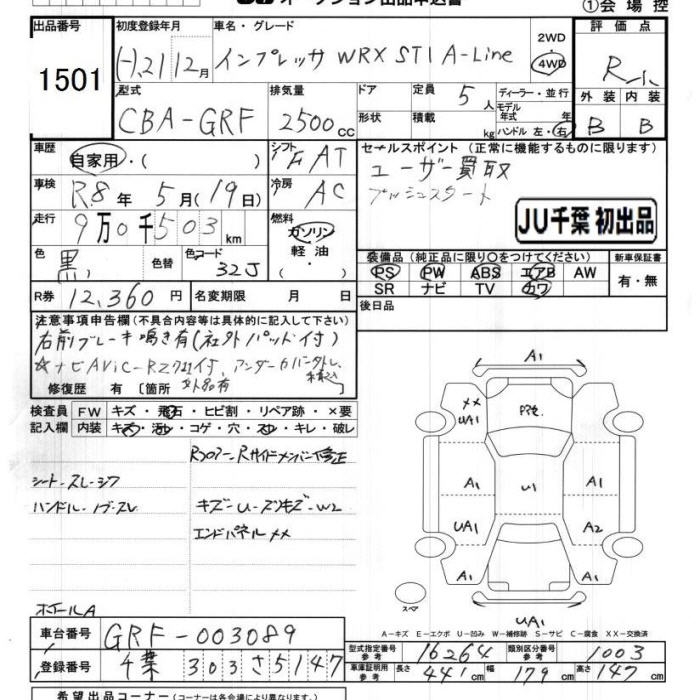 ①会場控
出品番号 初度登録年月 車名・グレード 評価点
1501 H21 12月 インプレッサ WRX STI A-Line 2WD 4WD R
型式 排気量 ドア 定員 ディーラー・並行 外装 内装
CBA-GRF 2500cc 5人 モデル年式 年 B B
形状 積載 kg ハンドル 左・右
車歴 自家用・( ) シフト FAT セールスポイント(正常に機能するものに限ります)
ユーザー買取
車検 R8年5月(19日) 冷房 AC プッシュスタート
走行 9万0千503km 燃料 ガソリン 軽油 ( ) JU千葉 初出品
色 黒 色替 色コード 32J 装備品(純正品に限り○をつけてください) 新車保証書
PS PW ABS エアB AW 有・無
SR ナビ TV カワ
R券 12,360円 名変期限 月 日 後日品
注意事項申告欄(不具合内容等は具体的に記入して下さい)
右前ブレーキ鳴き有(社外パッド付)
☆ナビAVIC-RZ
修復歴 有 [箇所
検査員記入欄 FW キズ・飛石・ヒビ割・リペア跡・×要
内装 キズ・汚シ・コゲ・穴・スレ・キレ・破レ
シート-スレ・シワ
ハンドル・ノブ-スレ キズ-U-ズツキズ-W2
エンドパネル××
ホイールA
A1
××
UA1 A1
U1
A1 A1
UA1 A2
A1 A1
スペア UA1
A-キズ E-エクボ U-凹み W-補修跡 S-サビ C-腐食 XX-交換済
車台番号 GRF-003089 型式指定番号 参考 16264 類別区分番号 参考 1003
登録番号 千葉 303 さ 5147 車庫証明用 参考 長さ 441cm 幅 179cm 高さ 147cm
希望出品コーナー(コーナーは各会場により異なります。)